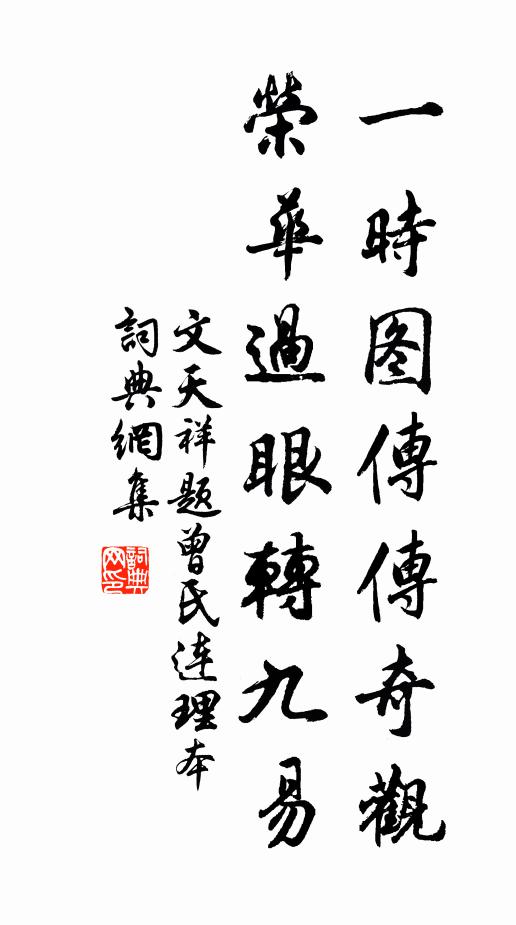 一時图傳傳奇觀
榮華過眼轉九易
文天祥题曾氏連理本
詞典網集
詞典網印